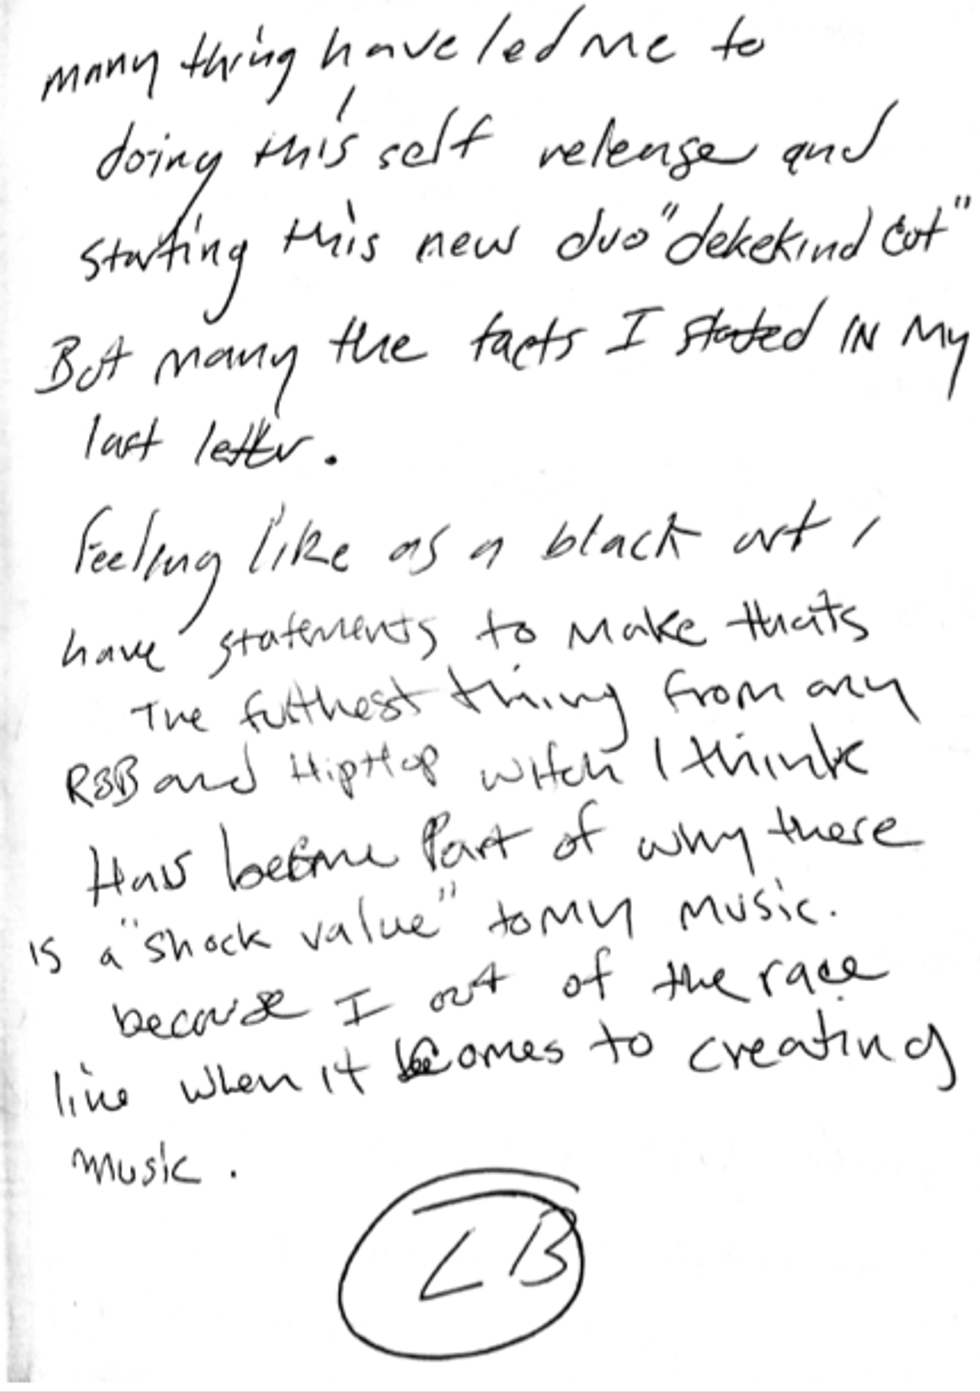 many thing have led me to
doing this self release and
starting this new duo "dekekind cut"
But many the facts I stated IN My
last letter.
Feeling like as a black art I
have statements to make thats
The futhest thing from any
R&B and HipHop witch I think
Has become Part of why there
is a "shock value" to my music.
because I out of the race
line when it comes to creating
music.
LB